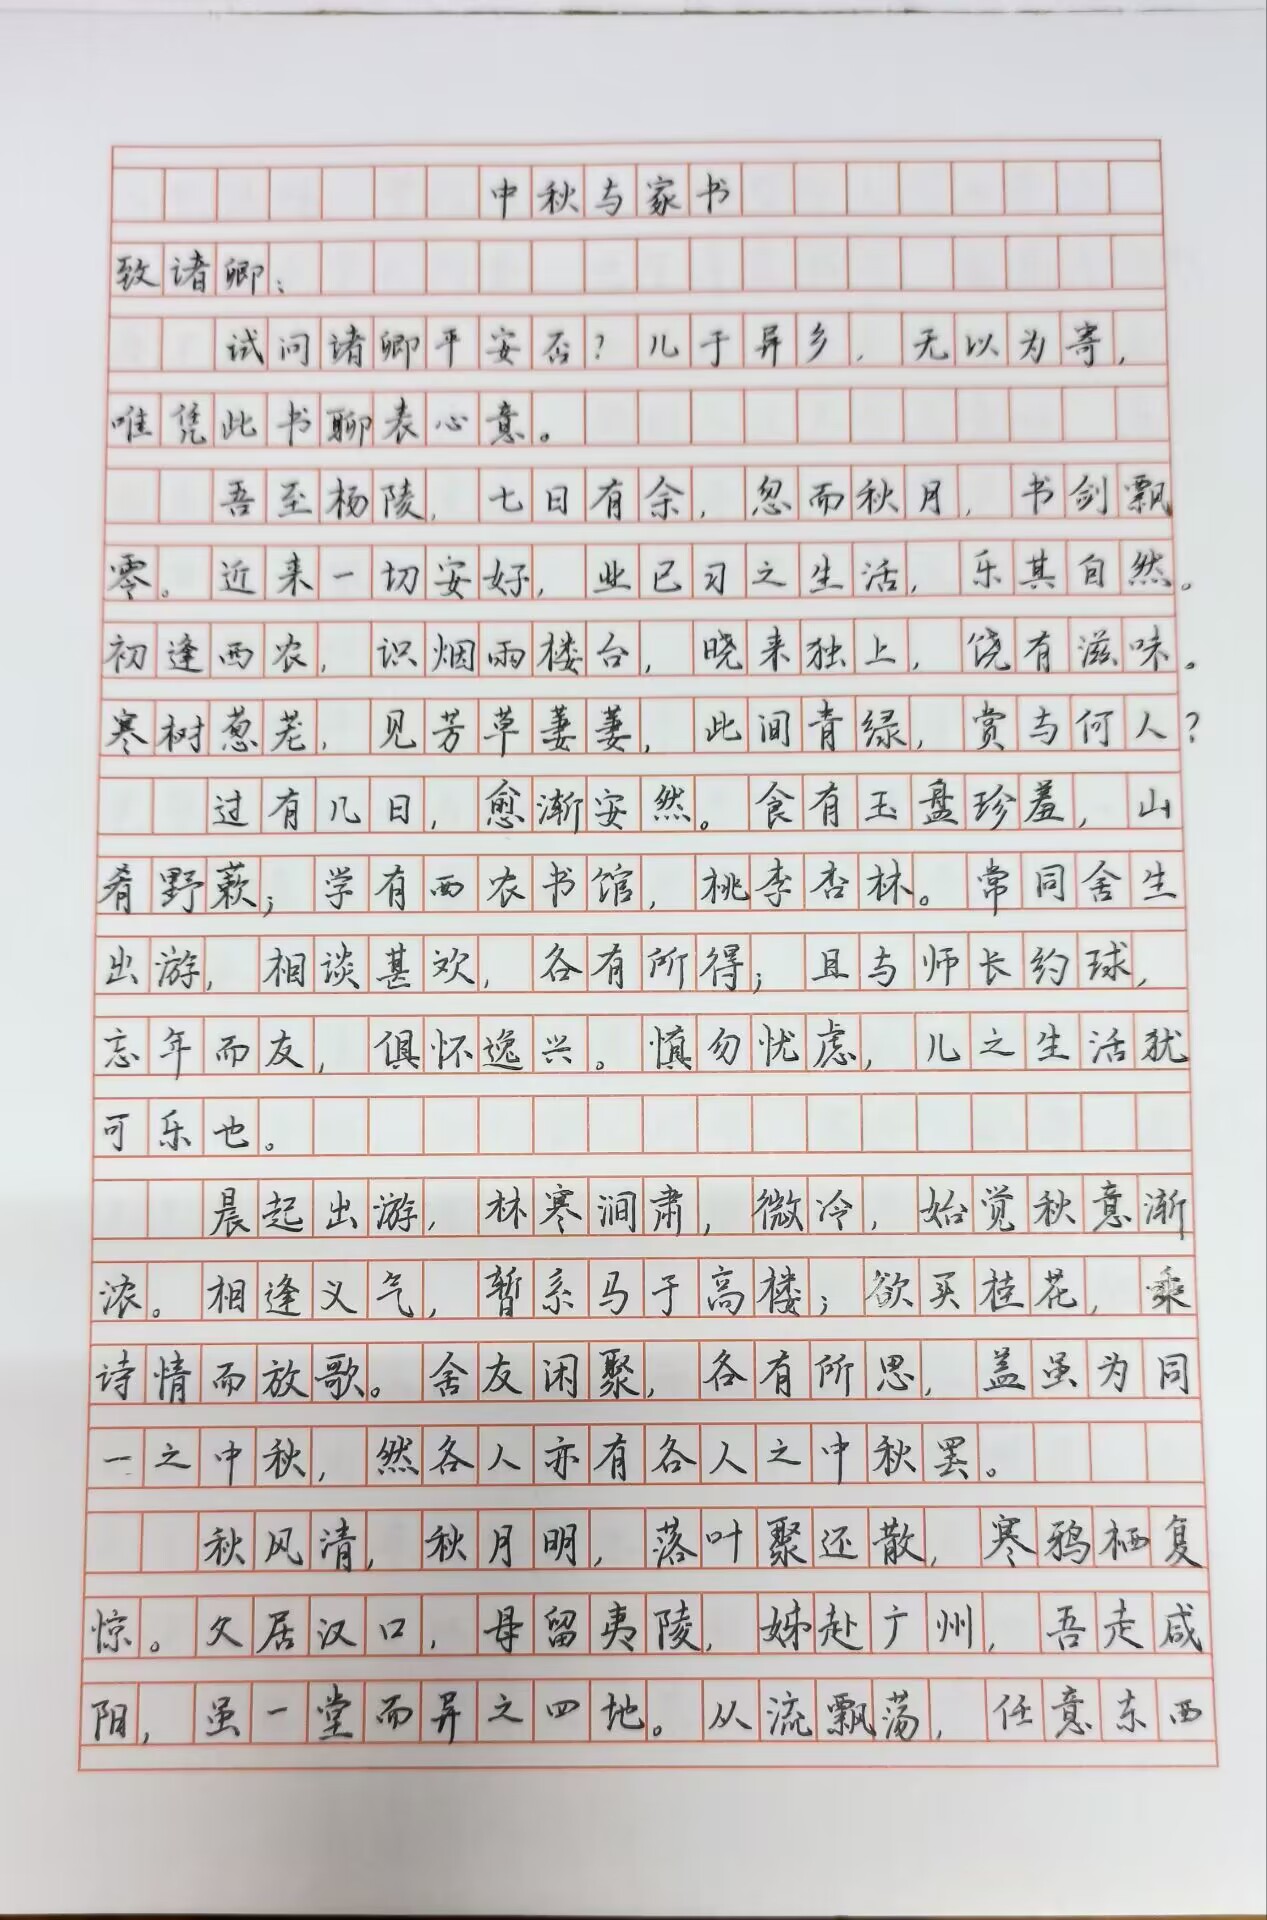 中秋与家书
致诸卿：
试问诸卿平安否？儿于异乡，无以为寄，
唯凭此书聊表心意。
吾至杨陵，七日有余，忽而秋月，书剑飘
零。近来一切安好，业已习之生活，乐其自然。
初逢西农，识烟雨楼台，晓来独上，饶有滋味。
寒树葱茏，见芳草萋萋，此间青绿，赏与何人？
过有几日，愈渐安然。食有玉盘珍羞，山
肴野蔌；学有西农书馆，桃李杏林。常同舍生
出游，相谈甚欢，各有所得；且与师长约球，
忘年而友，俱怀逸兴。慎勿忧虑，儿之生活犹
可乐也。
晨起出游，林寒涧肃，微冷，始觉秋意渐
浓。相逢义气，暂系马于高楼；欲买桂花，乘
诗情而放歌。舍友闲聚，各有所思，盖虽为同
一之中秋，然各人亦有各人之中秋罢。
秋风清，秋月明，落叶聚还散，寒鸦栖复
惊。父居汉口，母留夷陵，姊赴广州，吾走咸
阳，虽一堂而异之四地。从流飘荡，任意东西